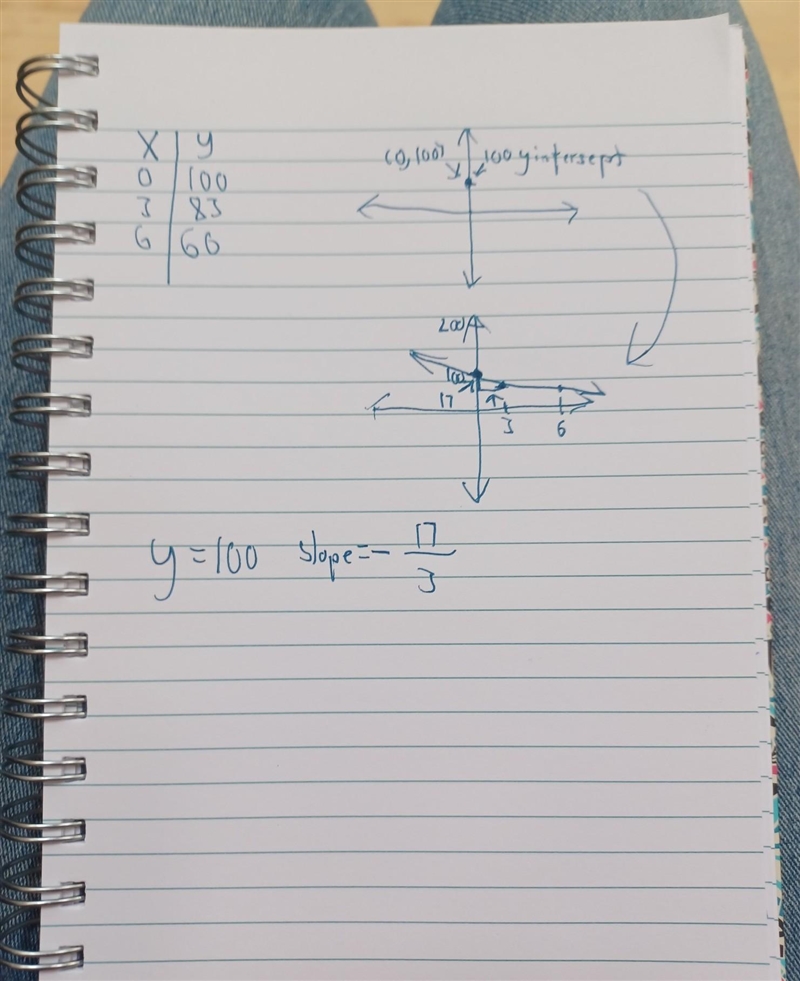 X | y
0 | 100
3 | 83
6 | 66
(0,100) 100 yintersept
200
100
17
3 6
y = 100 slope = - 17/3